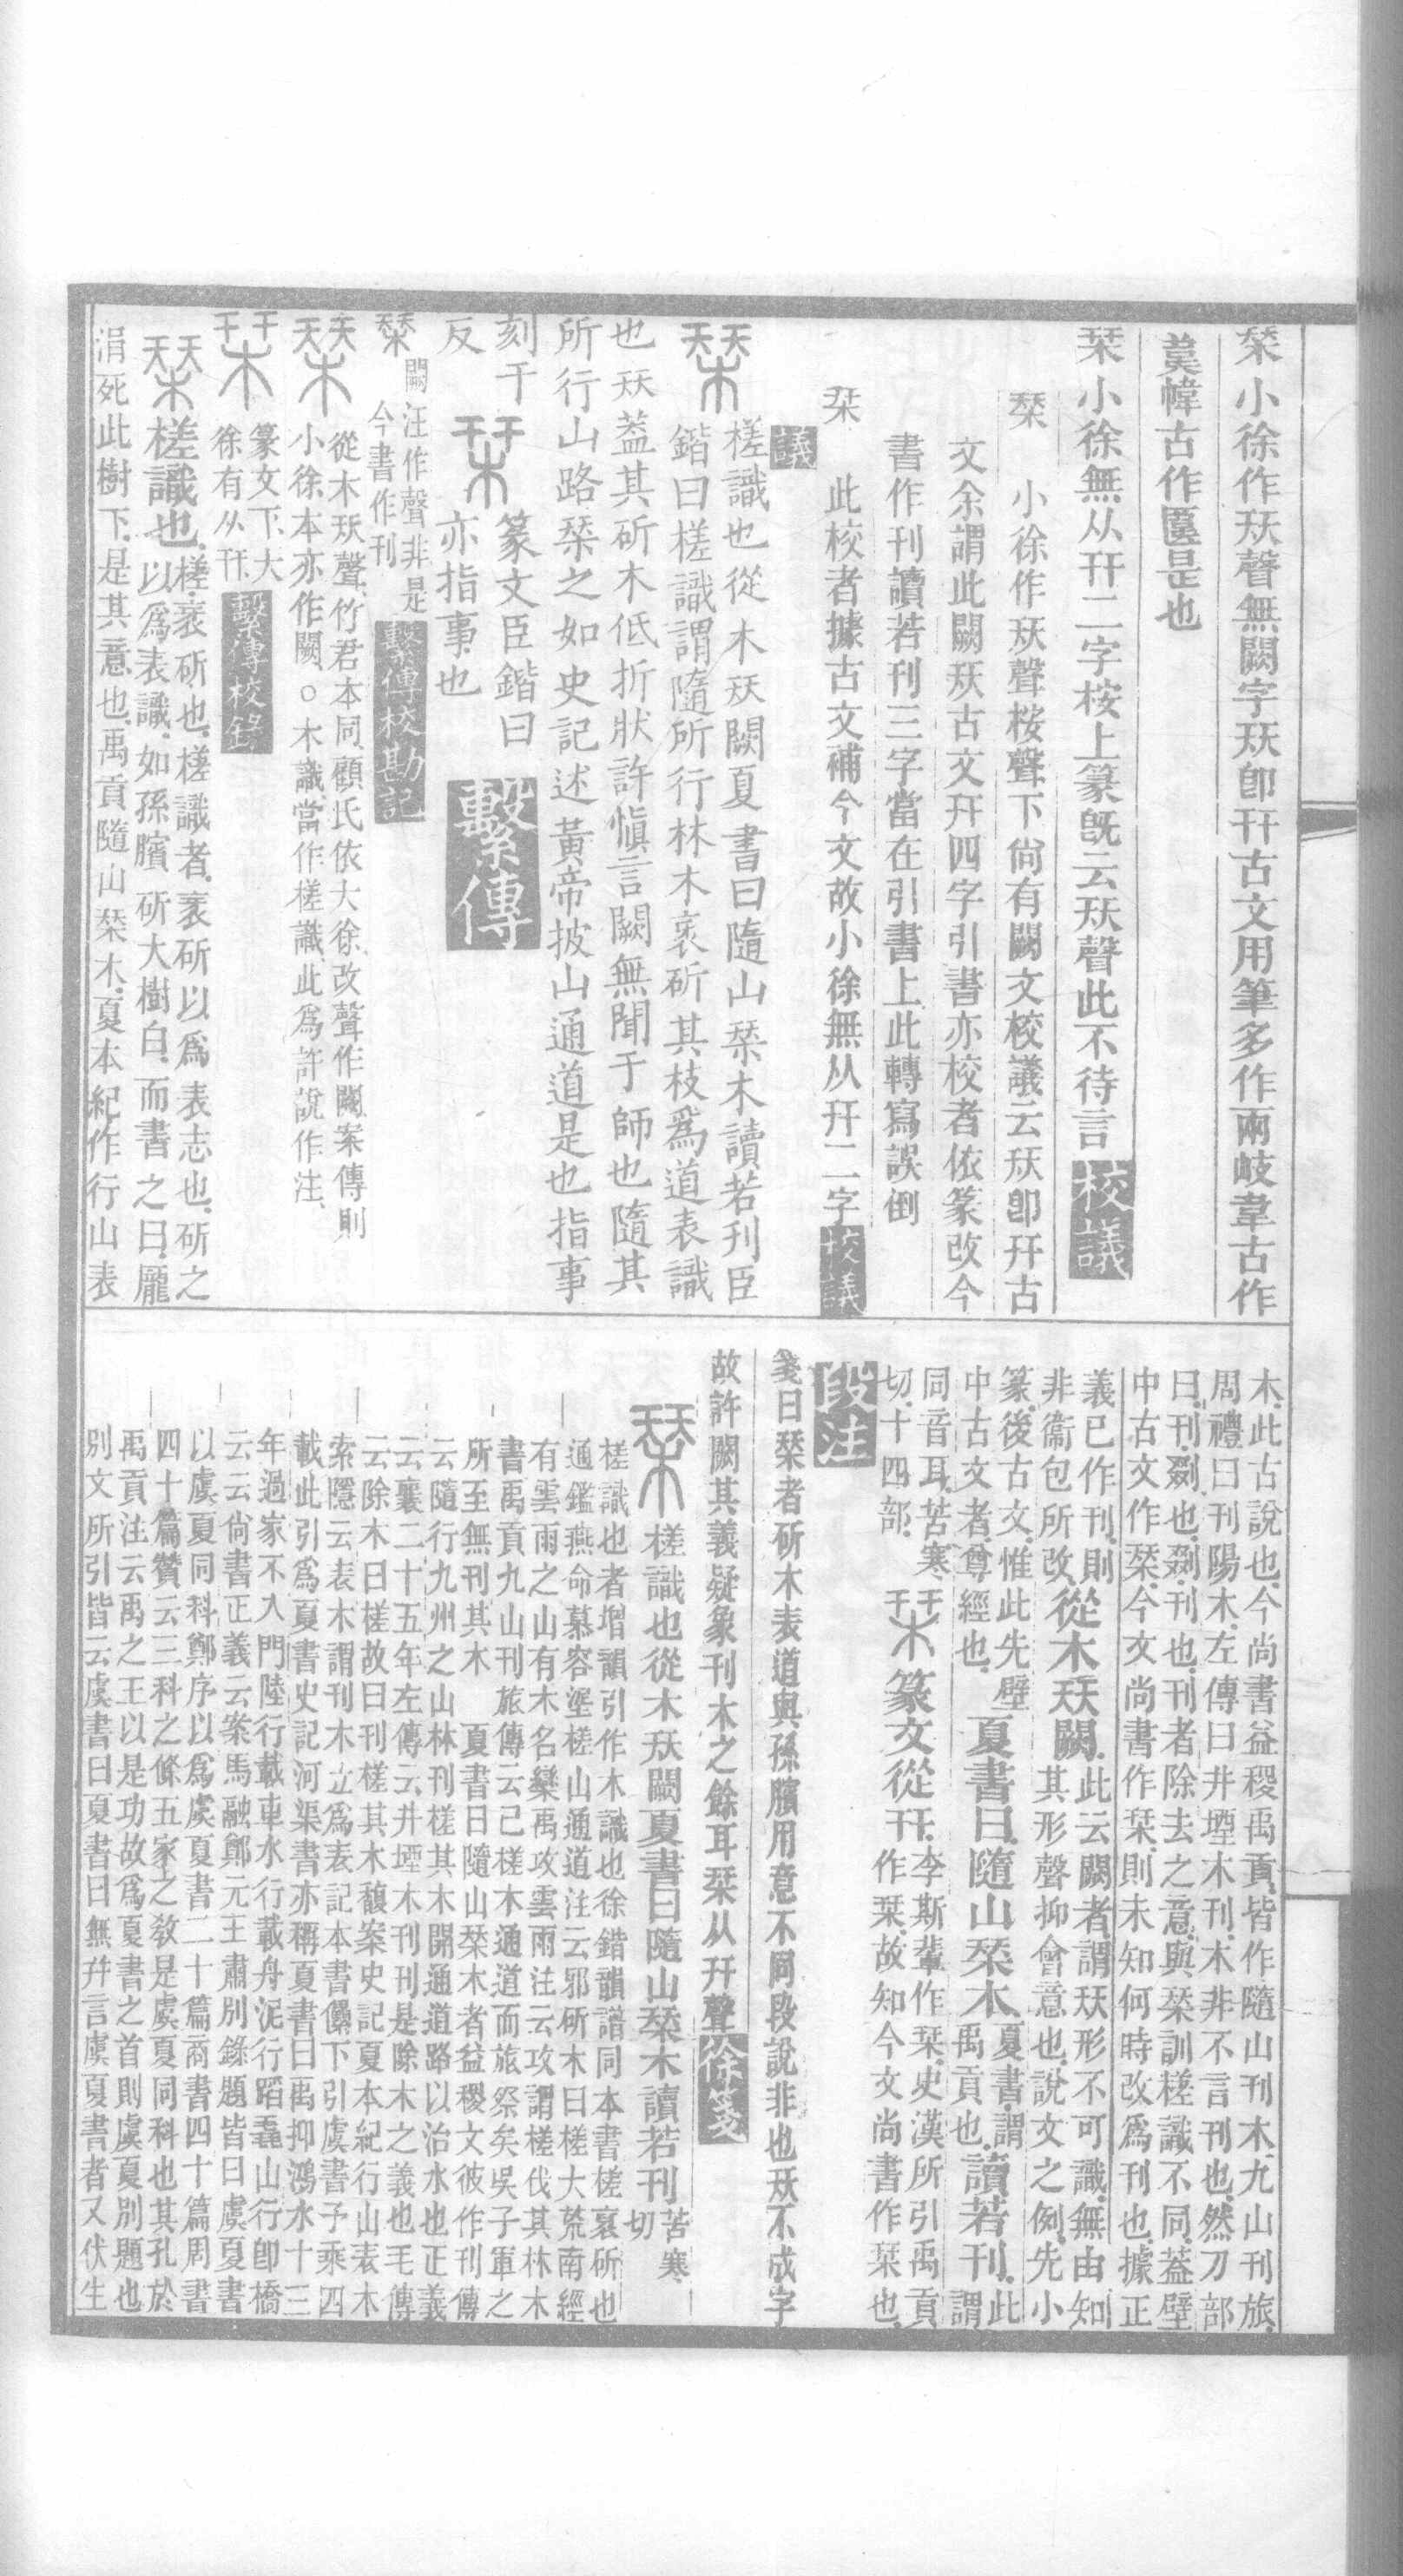 栞小徐作㺯聲無闕字㺯卽幵古文用筆多作兩岐韋古作
𡙇幃古作匱是也
栞小徐無从幵二字桉上篆旣云㺯聲此不待言校議
栞　小徐作㺯聲桉聲下尚有闕文校議云㺯卽幵古
文余謂此闕㺯古文幵四字引書亦校者依篆改今
書作刊讀若刊三字當在引書上此轉寫誤倒
栞　此校者據古文補今文故小徐無从幵二字校議
議
槎識也從木㺯闕夏書曰隨山栞木讀若刊臣
鍇曰槎識謂隨所行林木衺斫其枝爲道表識
也㺯蓋其斫木低折狀許愼言闕無聞于師也隨其
所行山路栞之如史記述黃帝披山通道是也指事
刻干
反
篆文臣鍇曰
亦指事也
繫傳
栞闕汪作聲非是
今書作刊
繫傳校勘記
從木㺯聲竹君本同顧氏依大徐改聲作闕案傳則
小徐本亦作闕○木識當作槎識此爲許說作注
篆文下大
徐有从幵
繫傳校錄
槎識也槎衺斫也槎識者衺斫以爲表志也斫之
以爲表識如孫臏斫大樹白而書之曰龐
涓死此樹下是其意也禹貢隨山栞木夏本紀作行山表
木此古說也今尚書益稷禹貢皆作隨山刊木九山刊旅
周禮曰刊陽木左傳曰井堙木刊木非不言刊也然刀部
曰刊剟也剟刊也刊者除去之意與栞訓槎識不同葢壁
中古文作栞今文尚書作栞則未知何時改爲刊也據正
義已作刊則
非衞包所改
從木㺯闕
此云闕者謂㺯形不可識無由知
其形聲抑會意也說文之例先小
篆後古文惟此先壁
中古文者尊經也
夏書曰隨山栞木
夏書謂
禹貢也
讀若刊
此
謂
同音耳苦寒
切十四部
篆文從幵
李斯輩作栞史漢所引禹貢
作栞故知今文尚書作栞也
段注
箋曰栞者斫木表道與孫臏用意不同段說非也㺯不成字
故許闕其義疑象刊木之餘耳栞从幵聲徐箋
槎識也從木㺯闕夏書曰隨山栞木讀若刊
苦寒
切
槎識也者增韻引作木識也徐鍇韻譜同本書槎衺斫也
通鑑燕命慕容垕槎山通道注云邪斫木曰槎大荒南經
有雲雨之山有木名欒禹攻雲雨注云攻謂槎伐其林木
書禹貢九山刊旅傳云已槎木通道而旅祭矣吳子軍之
所至無刊其木　夏書曰隨山栞木者益稷文彼作刊傳
云隨行九州之山林刊槎其木開通道路以治水也正義
云襄二十五年左傳云井堙木刊刊是除木之義也毛傳
云除木曰槎故曰刊槎其木馥案史記夏本紀行山表木
索隱云表木謂刊木立爲表記本書欙下引虞書予乘四
載此引爲夏書史記河渠書亦稱夏書曰禹抑鴻水十三
年過家不入門陸行載車水行載舟泥行蹈毳山行卽橋
云云尚書正義云案馬融鄭元王肅別錄題皆曰虞夏書
以虞夏同科鄭序以爲虞夏書二十篇商書四十篇周書
四十篇贊云三科之條五家之敎是虞夏同科也其孔於
禹貢注云禹之王以是功故爲夏書之首則虞夏別題也
別文所引皆云虞書曰夏書曰無幷言虞夏書者又伏生